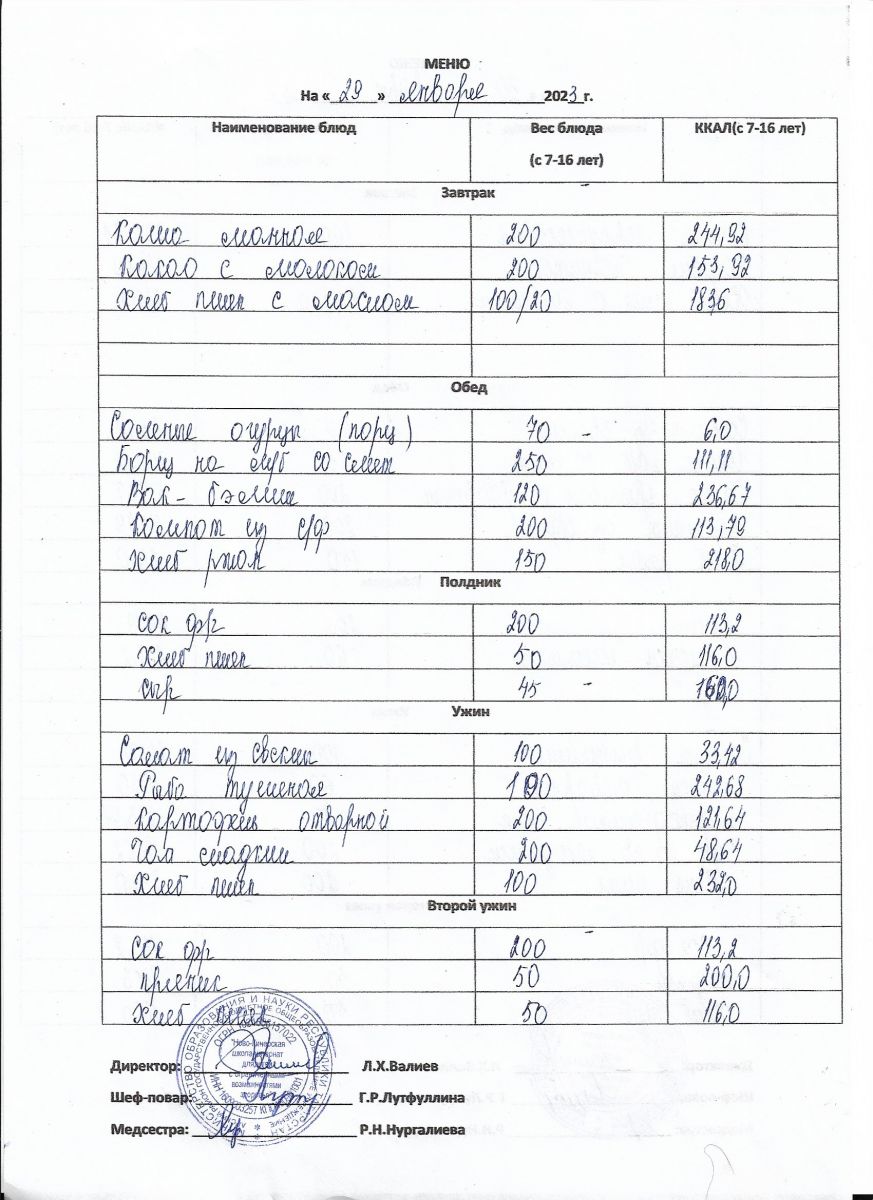 МЕНЮ
На « 29 » января 2023 г.
Наименование блюд Вес блюда (с 7-16 лет) ККАЛ(с 7-16 лет)
Завтрак
Каша манная 200 244,92
Какао с молоком 200 153,92
Хлеб пшен с маслом 100/20 183,6
Обед
Соленые огурцы (порц) 70 - 6,0
Борщ на м/б со смет 250 111,11
Вак- бэлиш 120 236,67
Компот из с/ф 200 113,79
Хлеб ржан 150 218,0
Полдник
Сок фр 200 113,2
Хлеб пшен 50 116,0
Сыр 45 -
Ужин
Салат из свеклы 100 33,42
Рыба тушеная 100 242,68
Картофель отварной 200 121,64
Чай сладкий 200 48,64
Хлеб пшен 100 232,0
Второй ужин
Сок фр 200 113,2
пряник 50 200,0
Хлеб пшен 50 116,0
Директор: Л.Х.Валиев
Шеф-повар: Г.Р.Лутфуллина
Медсестра: Р.Н.Нургалиева